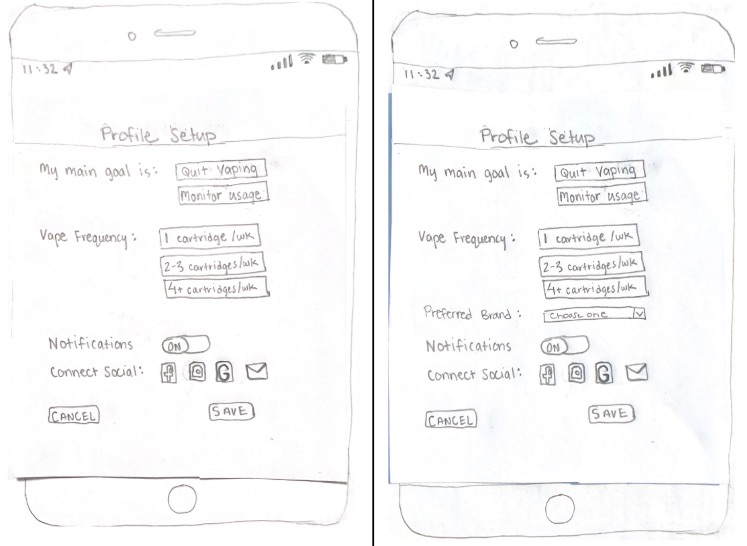 11:32
Profile Setup
My main goal is: Quit Vaping
Monitor usage
Vape Frequency: 1 cartridge/wk
2-3 cartridges/wk
4+ cartridges/wk
Notifications ON
Connect Social: f G
CANCEL SAVE
11:32
Profile Setup
My main goal is: Quit Vaping
Monitor usage
Vape Frequency: 1 cartridge/wk
2-3 cartridges/wk
4+ cartridges/wk
Preferred Brand: Choose one
Notifications ON
Connect Social: f G
CANCEL SAVE